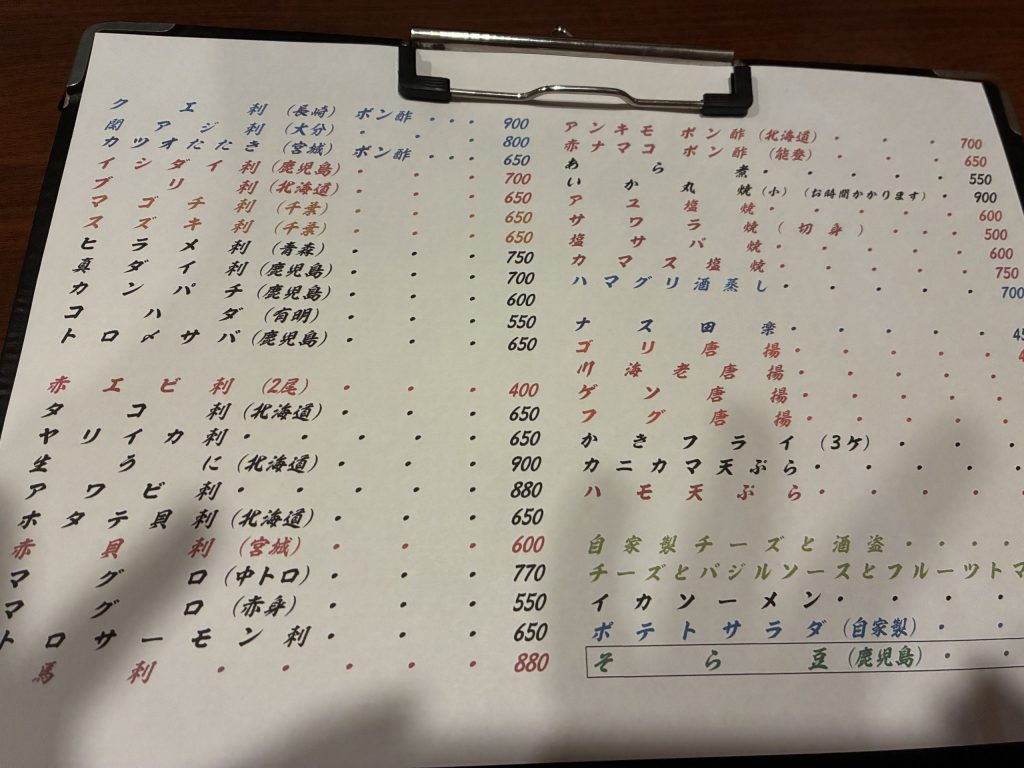 クエ刺(長崎)ポン酢・・・900
関アジ刺(大分)・・・800
カツオたたき(宮城)ポン酢・・・650
イシダイ刺(鹿児島)・・・700
ブリ刺(北海道)・・・650
マゴチ刺(千葉)・・・650
スズキ刺(千葉)・・・650
ヒラメ刺(青森)・・・750
真ダイ刺(鹿児島)・・・700
カンパチ(鹿児島)・・・600
コハダ(有明)・・・550
トロ〆サバ(鹿児島)・・・650
赤エビ刺(2尾)・・・400
タコ刺(北海道)・・・650
ヤリイカ刺・・・・・650
生うに(北海道)・・・900
アワビ刺・・・・・880
ホタテ貝刺(北海道)・・・650
赤貝刺(宮城)・・・600
マグロ(中トロ)・・・770
マグロ(赤身)・・・550
トロサーモン刺・・・・650
馬刺・・・・・880
アンキモポン酢(北海道)・・・700
赤ナマコポン酢(能登)・・・650
あら煮・・・・550
いか丸焼(小)(お時間かかります)・900
アユ塩焼・・・・・600
サワラ焼(切身)・・・500
塩サバ焼・・・・・600
カマス塩焼・・・・・750
ハマグリ酒蒸し・・・・・700
ナス田楽・・・・・
ゴリ唐揚・・・・・
川海老唐揚・・・・・
ゲソ唐揚・・・・・
フグ唐揚・・・・・
かきフライ(3ケ)・・・
カニカマ天ぷら・・・・・
ハモ天ぷら・・・・・
自家製チーズと酒盗・・・・
チーズとバジルソースとフルーツトマ
イカソーメン・・・・
ポテトサラダ(自家製)・・
そら豆(鹿児島)・・